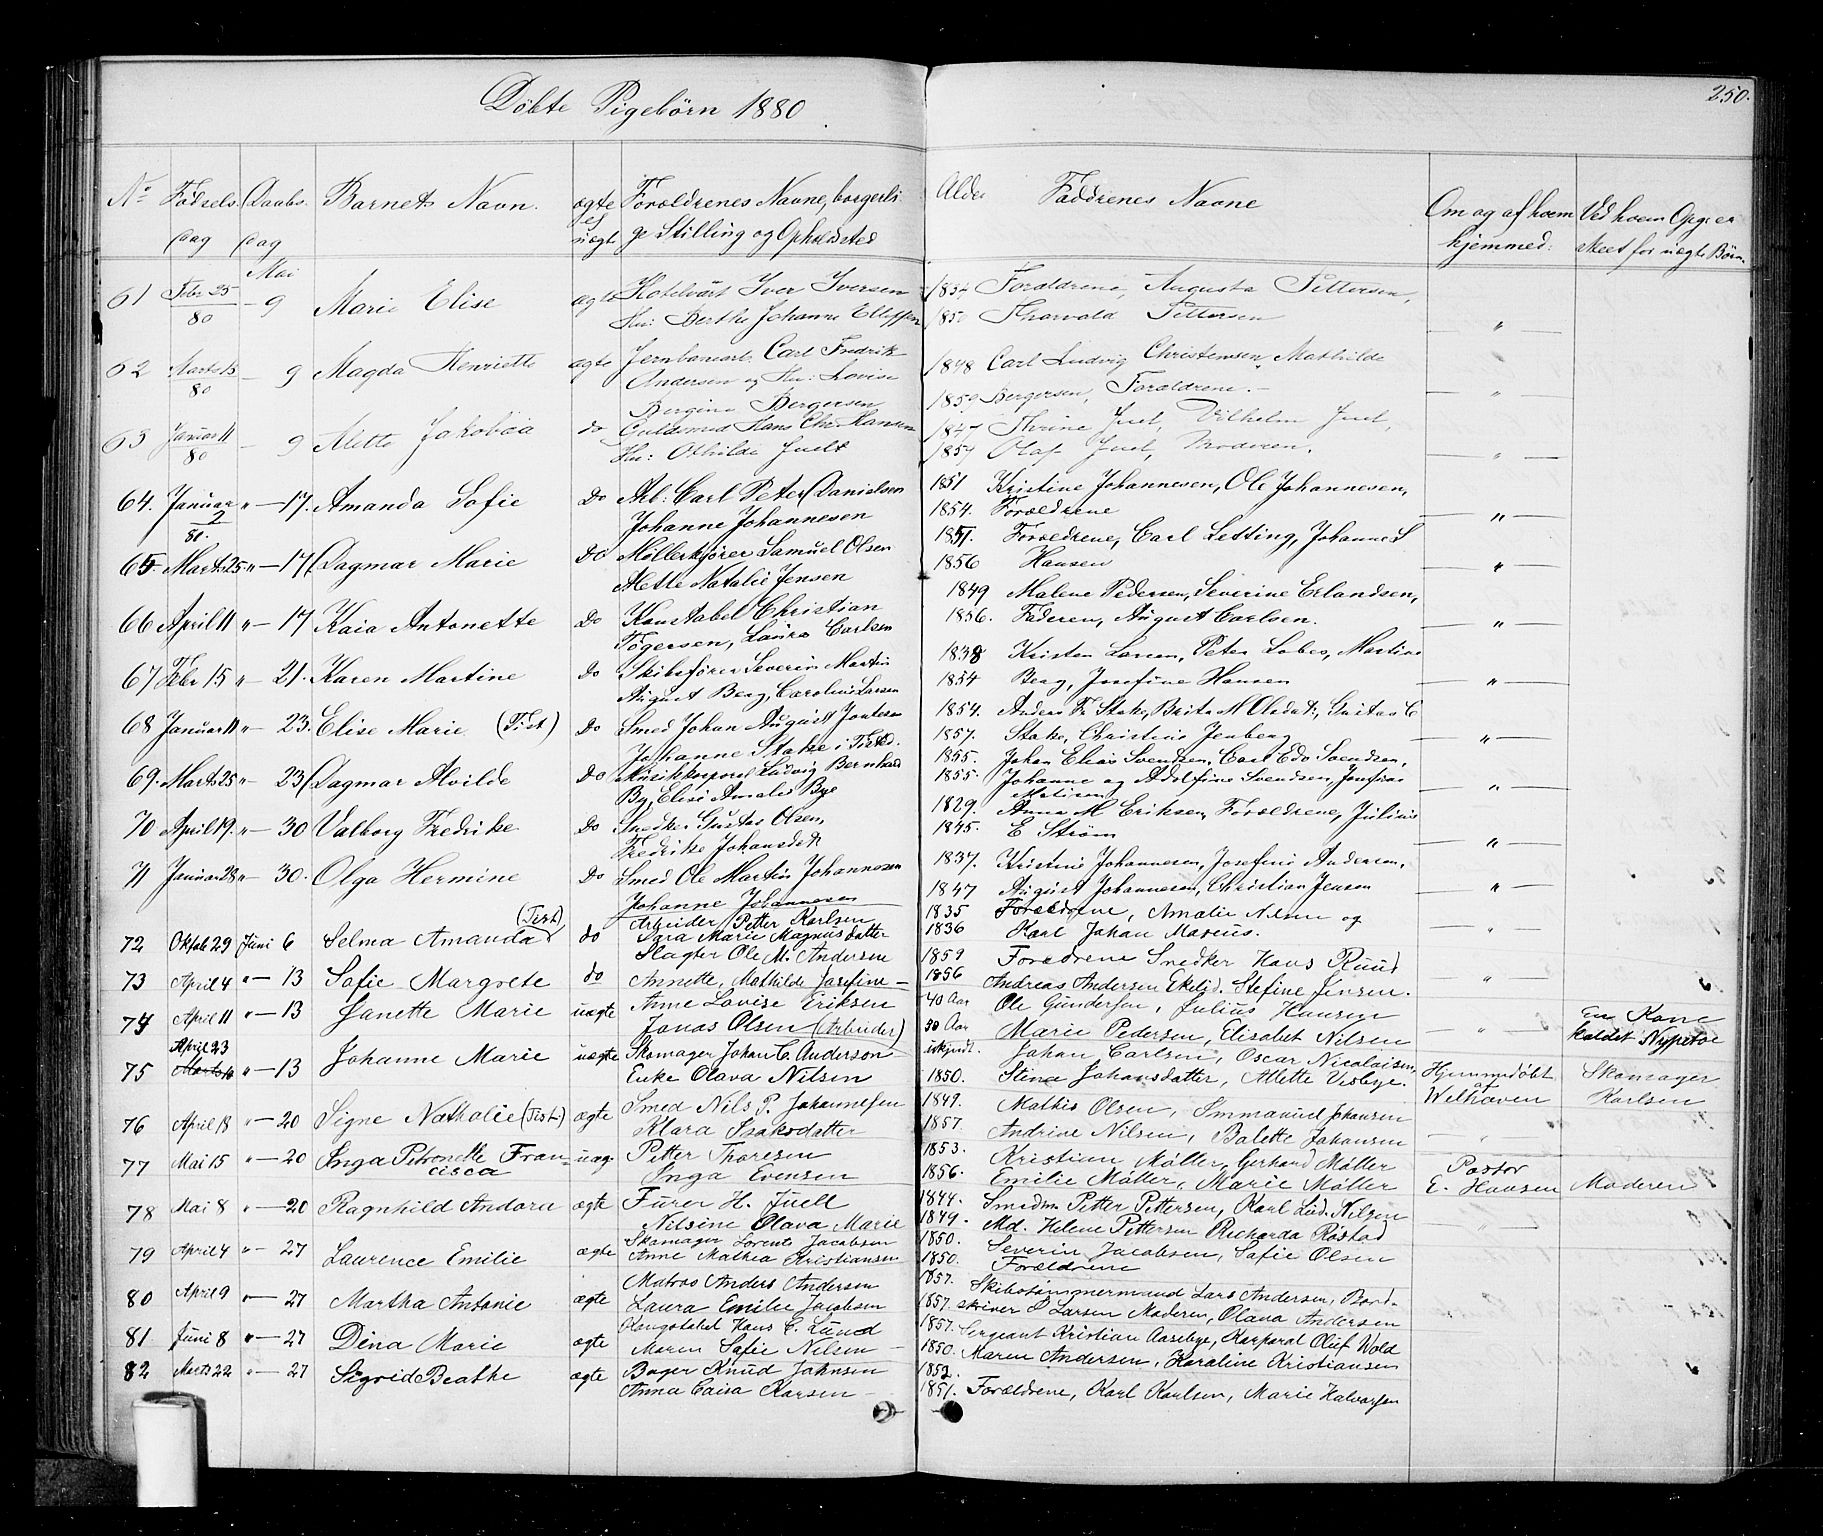 250.
Döbte Pigebörn 1880
No Födsels dag Daabs dag Barnets Navn. ægte ej uægte Forældrenes Navne, borgerli ge Stilling og Opholdsted Alder Faddrenes Navne Om og af hvem hjemmed: Ved hvem Opg: er skeet for uægte Børn.
61 Febr 25 80 Mai 9 Marie Elise ægte Iver Iversen 1834 Forældrene, Augusta Pettersen,
Hu: Berthe Johanne Ellefsen 1850 Thorvald Pettersen — " —
62 Marts 15 80 — 9 Magda Henriette ægte Jernbanearb. Carl Fredrik 1848 Carl Ludvig Christensen, Mathilde
Andersen og Hu: Lovise 1859 Bergersen, Forældrene. — " —
Bergine Bergersen
63 Januar 11 80 — 9 Alette Jakobæa do Guldsmed Hans Chr. Hansen 1847 Thrine Juel, Vilhelm Juel,
Hu: Othilde Juelt 1857 Olaf Juel, Moderen. — " —
64. Januar 2 80. " — 17. Amanda Sofie Do Arb: Carl Peter Danielsen 1851 Kristine Johannesen, Ole Johannesen,
Johanne Johannesen 1854. Forældrene — " —
65. Marts 25 " — 17 Dagmar Marie Do Møllerkjører Samuel Olsen 1851. Forældrene, Carl Setting, Johannes
Mette Natalie Jensen 1856 Hansen — " —
66 April 11 " — 17 Kaia Antonette Do Konstabel Christian 1849 Malene Pedersen, Severine Erlandsen,
Togersen, Laura Carlsen 1856. Faderen, August Carlsen. — " —
67 Febr 15 " — 21. Karen Martine Do Skibsfører Severin Martin 1838 Kristen Larsen, Peter Lobes, Martine
August Berg, Caroline Larsen 1854 Berg, Josefine Hansen — " —
68 Januar 11 " — 23. Elise Marie (Tist) Do Smed Johan August 1854. Anders Fr Stake, Brita M Olsdat., Gustav C
Johanne Stake i Tisted. 1857. Stake, Christine Jenberg — " —
69. Marts 25 " — 23 Dagmar Alvilde Do Musikkorporal Ludvig Bernhard 1855. Johan Elias Svendsen, Carl Edv Svendsen,
By, Elise Amalie Bye 1855. Johanne og Adolfine Svendsen, Josefine — " —
70 April 19. " — 30 Valborg Fredrike Do Snedker Gustav Olsen, 1829. Anna M Eriksen, Forældrene, Julius
Fredrike Johansdatr 1845. E Strøm — " —
71 Januar 28 " — 30. Olga Hermine Do Smed Ole Martin Johannesen 1837. Kristine Johannesen, Josefine Andersen,
Johanne Johannesen 1847 August Johannesen, Christian Jensen — " —
72 Oktob 29 Juni 6 Selma Amanda (Tist) do Arbeider Petter Karlsen 1835 Forældrene, Amalie Nilsen og
Sara Marie Magnusdatter 1836 Karl Johan Mareus. "
73 April 4 " — 13 Sofie Margrete do Slagter Ole M. Andersen 1859 Forældrene Snedker Hans Ruud
Annette, Mathilde Josefine — 1856 Andreas Andersen Ekelid. Stefine Jensen. "
74 April 11 " — 13 Janette Marie uægte Anne Lovise Eriksen 40 Aar Ole Gundersen, Julius Hansen En Kone
Jonas Olsen (Arbeider) 30 Aar Marie Pedersen, Elisabet Nilsen " kaldet Nypetoe
75 April 23 Marts 10 " — 13 Johanne Marie uægte Skomager Johan C. Anderson ubkjendt. Johan Carlsen, Oscar Nicolaisen, Hjemmedöbt Skomager
Enke Olava Nilsen 1850. Stina Johansdatter, Alette Visbye. af Welhaven Karlsen
76 April 18 " — 20 Signe Nathalie (Tist.) ægte Smed Nils P. Johannesen 1849. Mathis Olsen, Immanuel Johansen
Klara Isaksdatter 1857. Andrine Nilsen, Balette Johansen — " —
77 Mai 15 " — 20 Inga Petronelle Francisca uæg. Petter Thoresen 1853. Kristian Möller, Gerhard Möller Pastor
Inga Evensen 1856. Emilie Möller, Marie Möller E. Hansen Moderen
78 Mai 8 " — 20 Ragnhild Andora ægte Furer H. Juell 1844. Smedm. Petter Pettersen, Karl Lud. Nilsen
Nilsine Olava Marie 1849. Md. Helene Pettersen Richarda Röstad — " —
79 April 4 " — 27 Laurence Emilie ægte Skomager Lorents Jacobsen 1850. Severin Jacobsen, Sofie Olsen
Anne Mathea Kristiansen 1850. Forældrene
80 April 9 " — 27 Martha Antonie ægte Matros Anders Andersen 1857. Skibstömmermand Lars Andersen, Bord-
Laura Emilie Jacobsen 1857. skriver S Larsen Moderen, Olava Andersen
81. Juni 8 " — 27 Dina Marie ægte Kongstabel Hans C. Lund 1857. Sergeant Kristian Aasebye, Korporal Oluf Wold
Maren Sofie Nilsen — 1850. Maren Andersen, Karaline Kristiansen
82 Marts 22 " — 27 Sigrid Beathe ægte Bager Knud Johnsen 1852.
Anna Caisa Karsen — 1851. Forældrene, Karl Karlsen, Marie Halvorsen